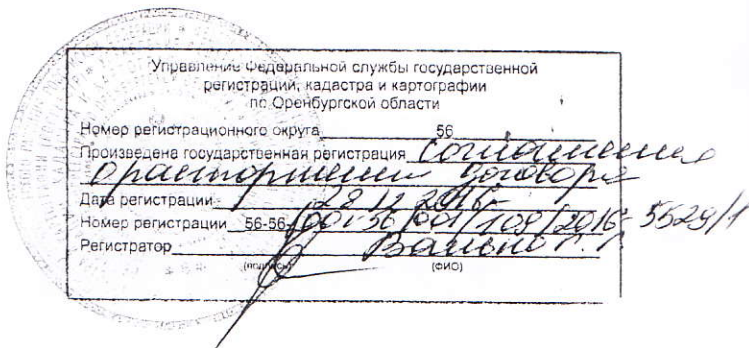 Управление Федеральной службы государственной
регистрации, кадастра и картографии
по Оренбургской области
Номер регистрационного округа 56
Произведена государственная регистрация соглашения
о расторжении договора
Дата регистрации 28.12.2016г
Номер регистрации 56-56/001-56/001/109/2016-5529/1
Регистратор
(подпись) (ФИО)